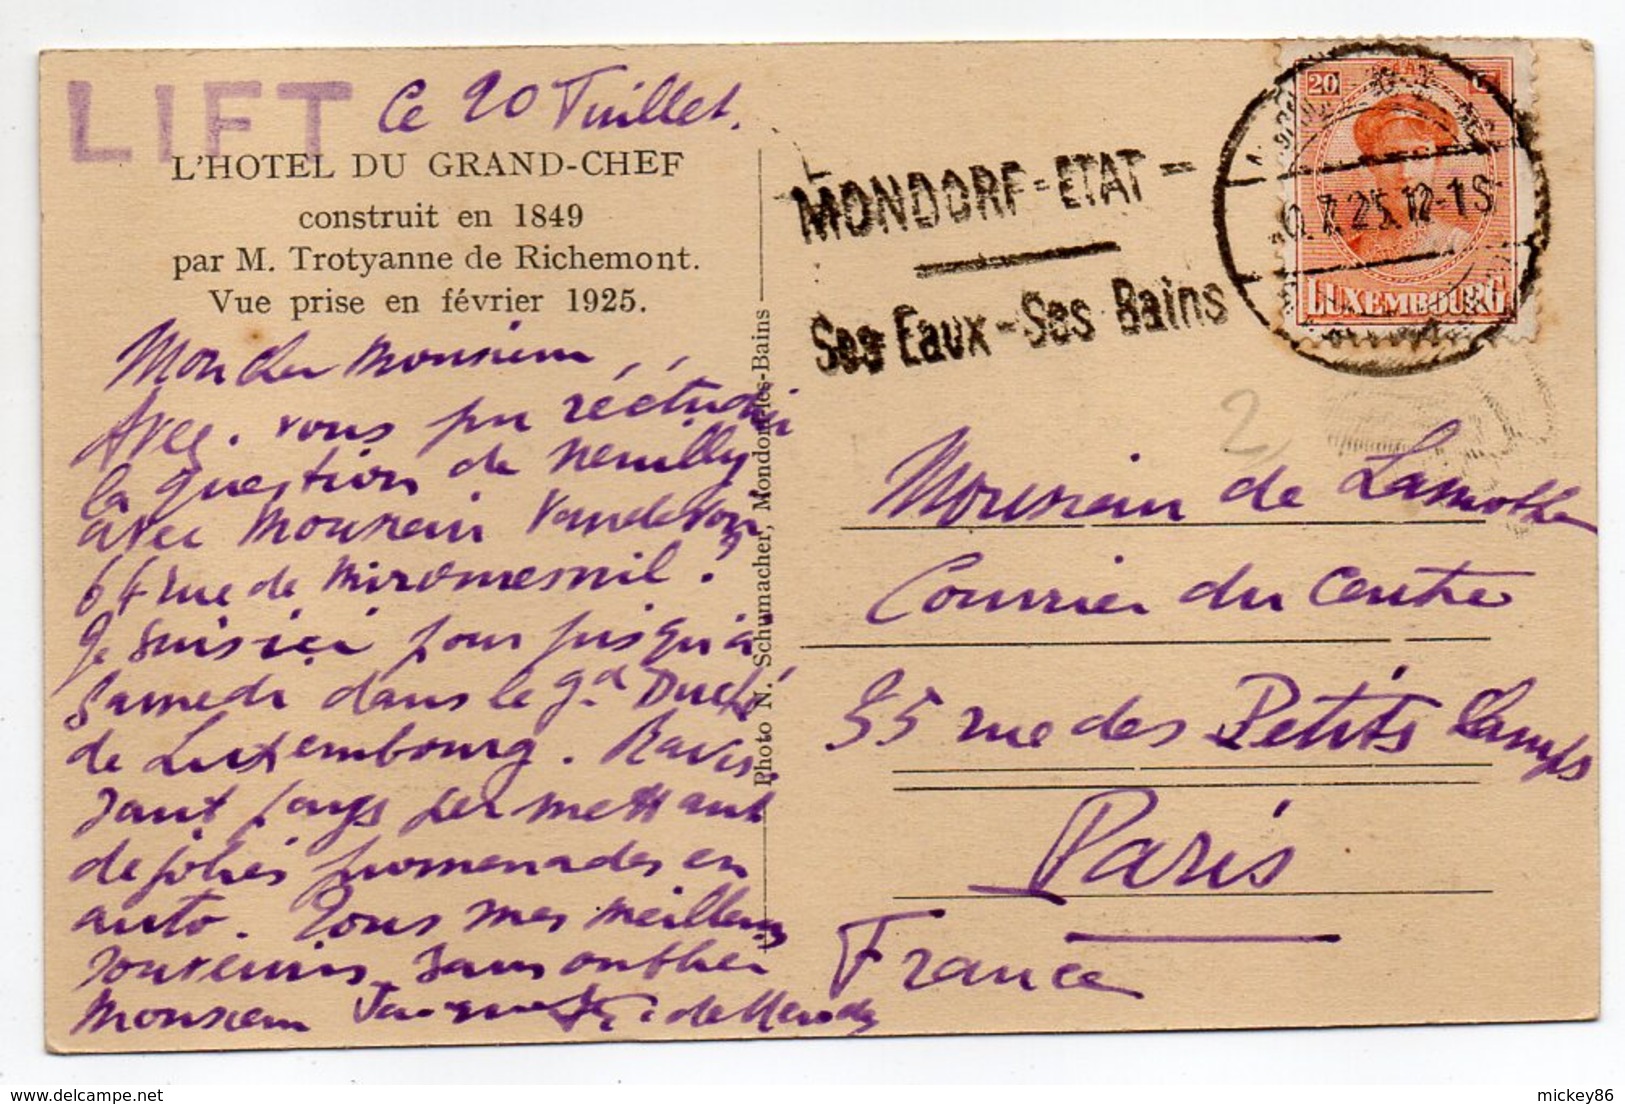 LIFT
Ce 20 Juillet.
L'HOTEL DU GRAND-CHEF
construit en 1849
par M. Trotyanne de Richemont.
Vue prise en février 1925.
Mon cher Monsieur,
Avez-vous pu réétudier
la question de Neuilly
avec Monsieur
64 rue de Miromesnil ?
Je suis ici pour jusqu'à
Samedi dans le gd Duché
de Luxembourg. Ravis.
sant pays permettant
de jolies promenades en
auto. Tous mes meilleurs
souvenirs sans oublier
Monsieur
Photo N. Schumacher, Mondorf-les-Bains
MONDORF-ETAT-
Ses Eaux-Ses Bains
20 C
7.25.12-1S
LUXEMBOURG
2
Monsieur de Lamothe
Courrier du Centre
35 rue des Petits Camps
Paris
France
mickey86